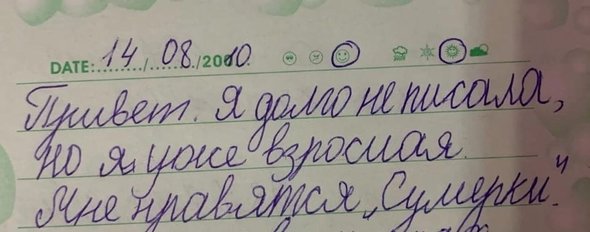 DATE: 14/08/2010
Привет. Я долго не писала,
но я уже взрослая.
Мне нравятся „Сумерки".